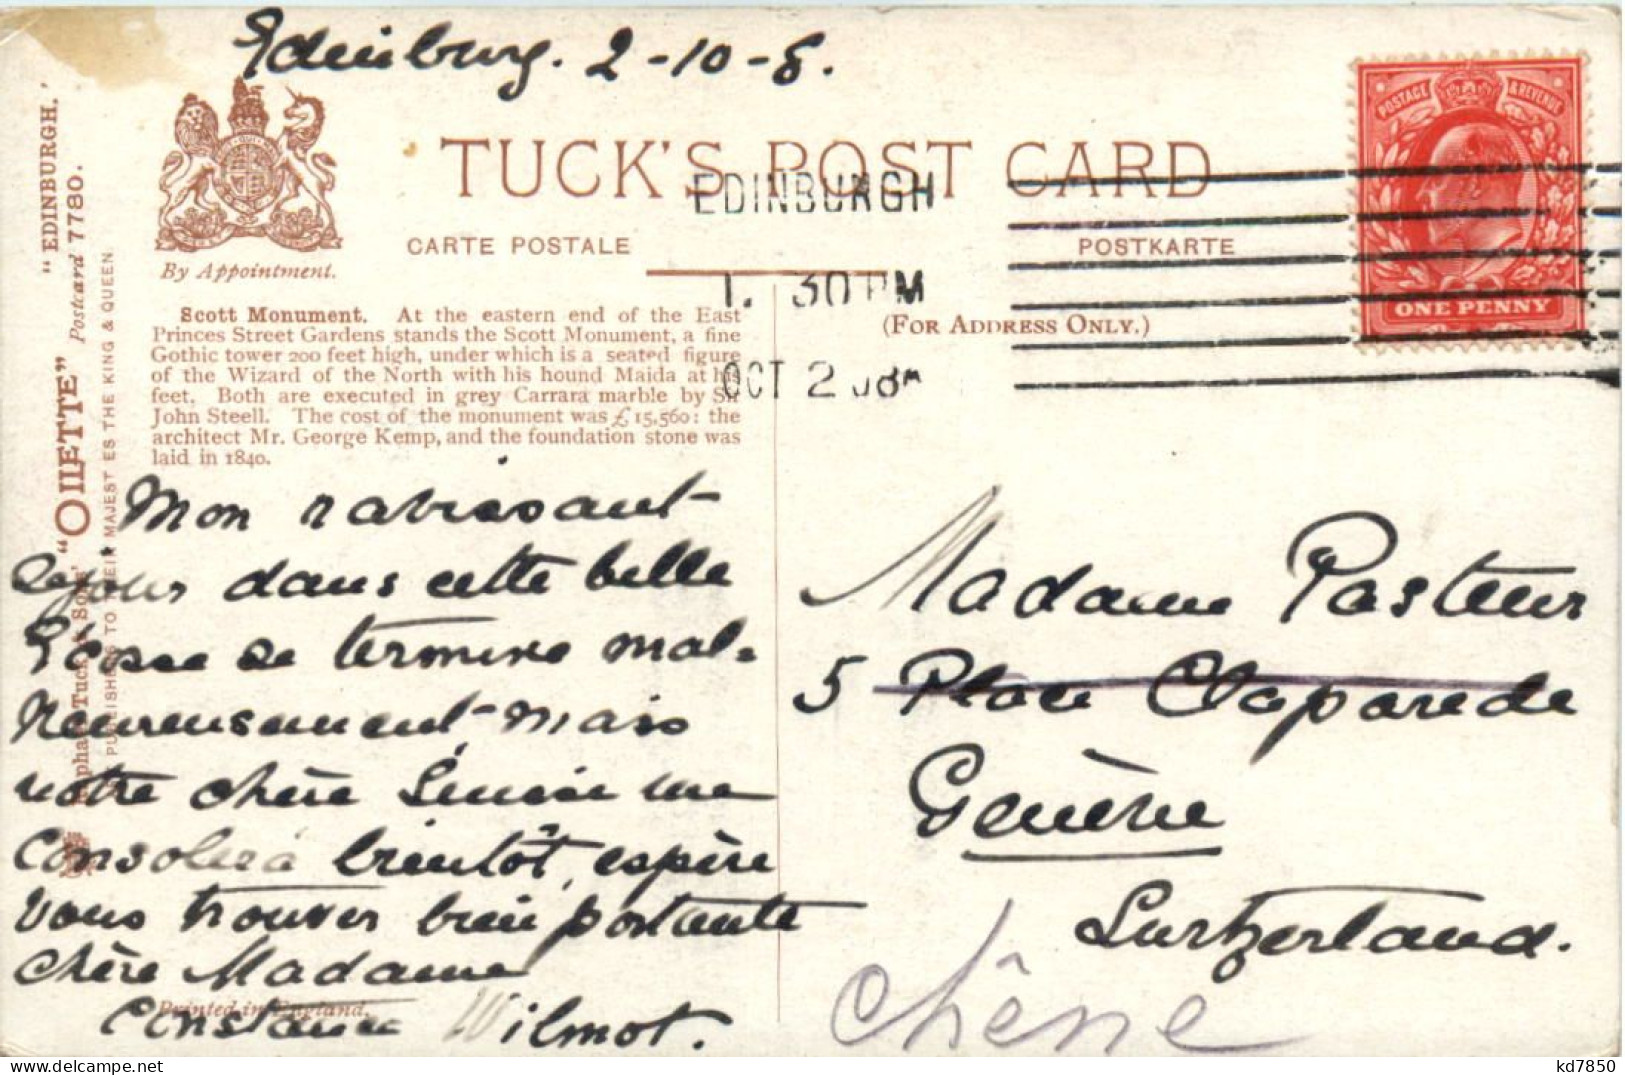 Edinburg. 2-10-8.
TUCK'S POST CARD
CARTE POSTALE
POSTKARTE
(FOR ADDRESS ONLY.)
By Appointment.
POSTAGE & REVENUE
ONE PENNY
EDINBURGH
1. 30 PM
OCT 2 08
"EDINBURGH."
Postcard 7780.
"OILETTE"
Raphael Tuck & Sons'
PUBLISHERS TO THEIR MAJESTIES THE KING & QUEEN
Scott Monument. At the eastern end of the East
Princes Street Gardens stands the Scott Monument, a fine
Gothic tower 200 feet high, under which is a seated figure
of the Wizard of the North with his hound Maida at his
feet. Both are executed in grey Carrara marble by Sir
John Steell. The cost of the monument was £15,560: the
architect Mr. George Kemp, and the foundation stone was
laid in 1840.
Mon ravissant
séjour dans cette belle
Ecosse se termine mal=
heureusement mais
notre chère Suisse me
consolera bientôt, espère
vous trouver bien portante
chère Madame
Constance Wilmot.
Printed in England.
Madame Pasteur
5 Place Claparede
Genève
Switzerland.
Chêne
kd7850